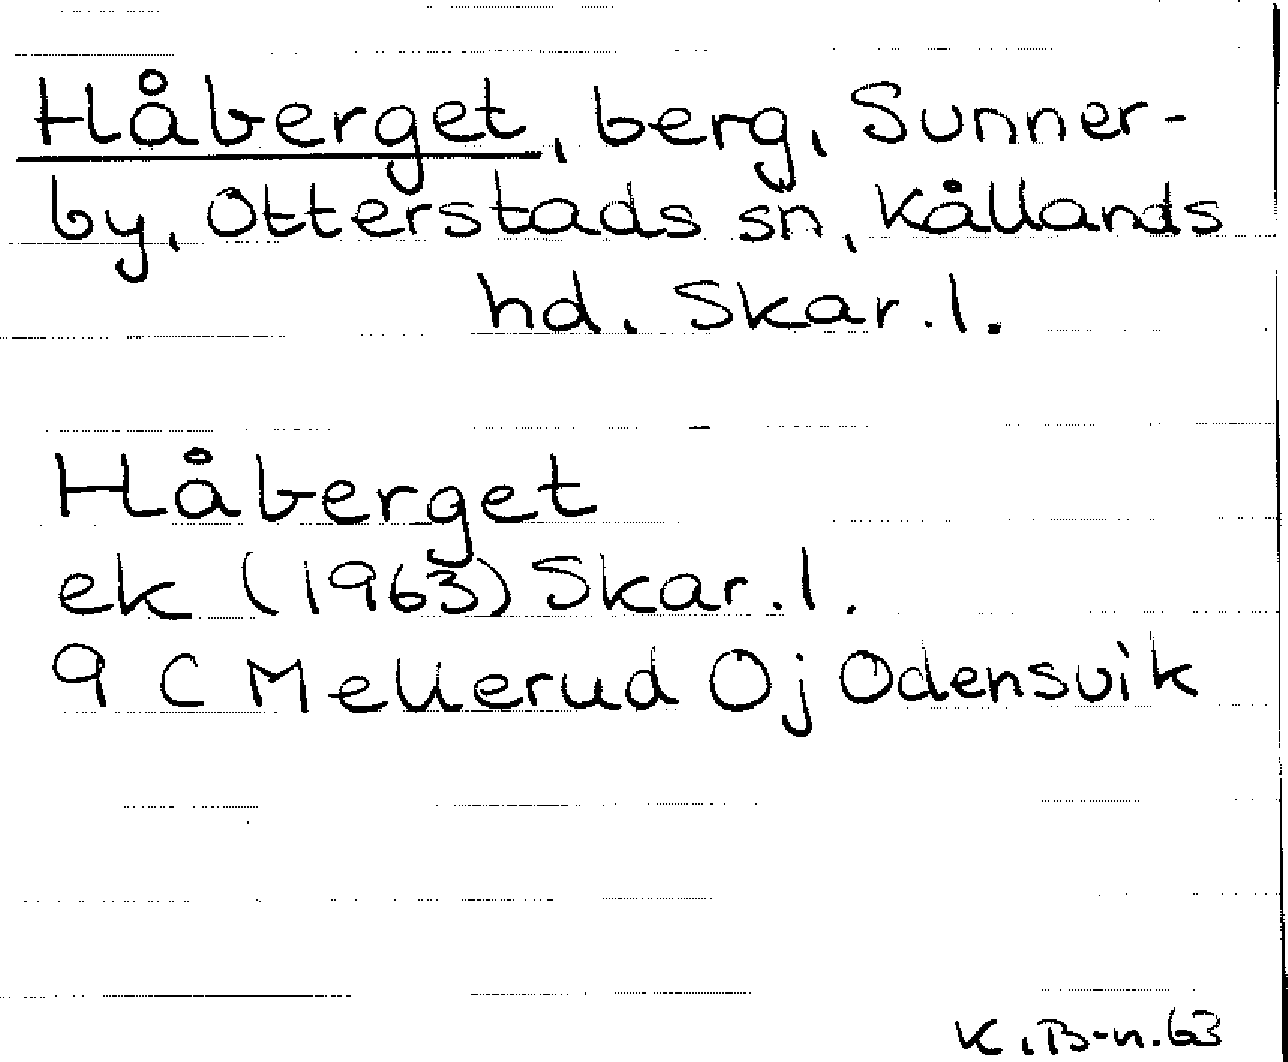 Håberget, berg, Sunner-
by, Otterstads sn, Kållands
hd. Skar. l.
Håberget
ek (1963) Skar. l.
9 C Mellerud Oj Odensvik
K. B-n. 63